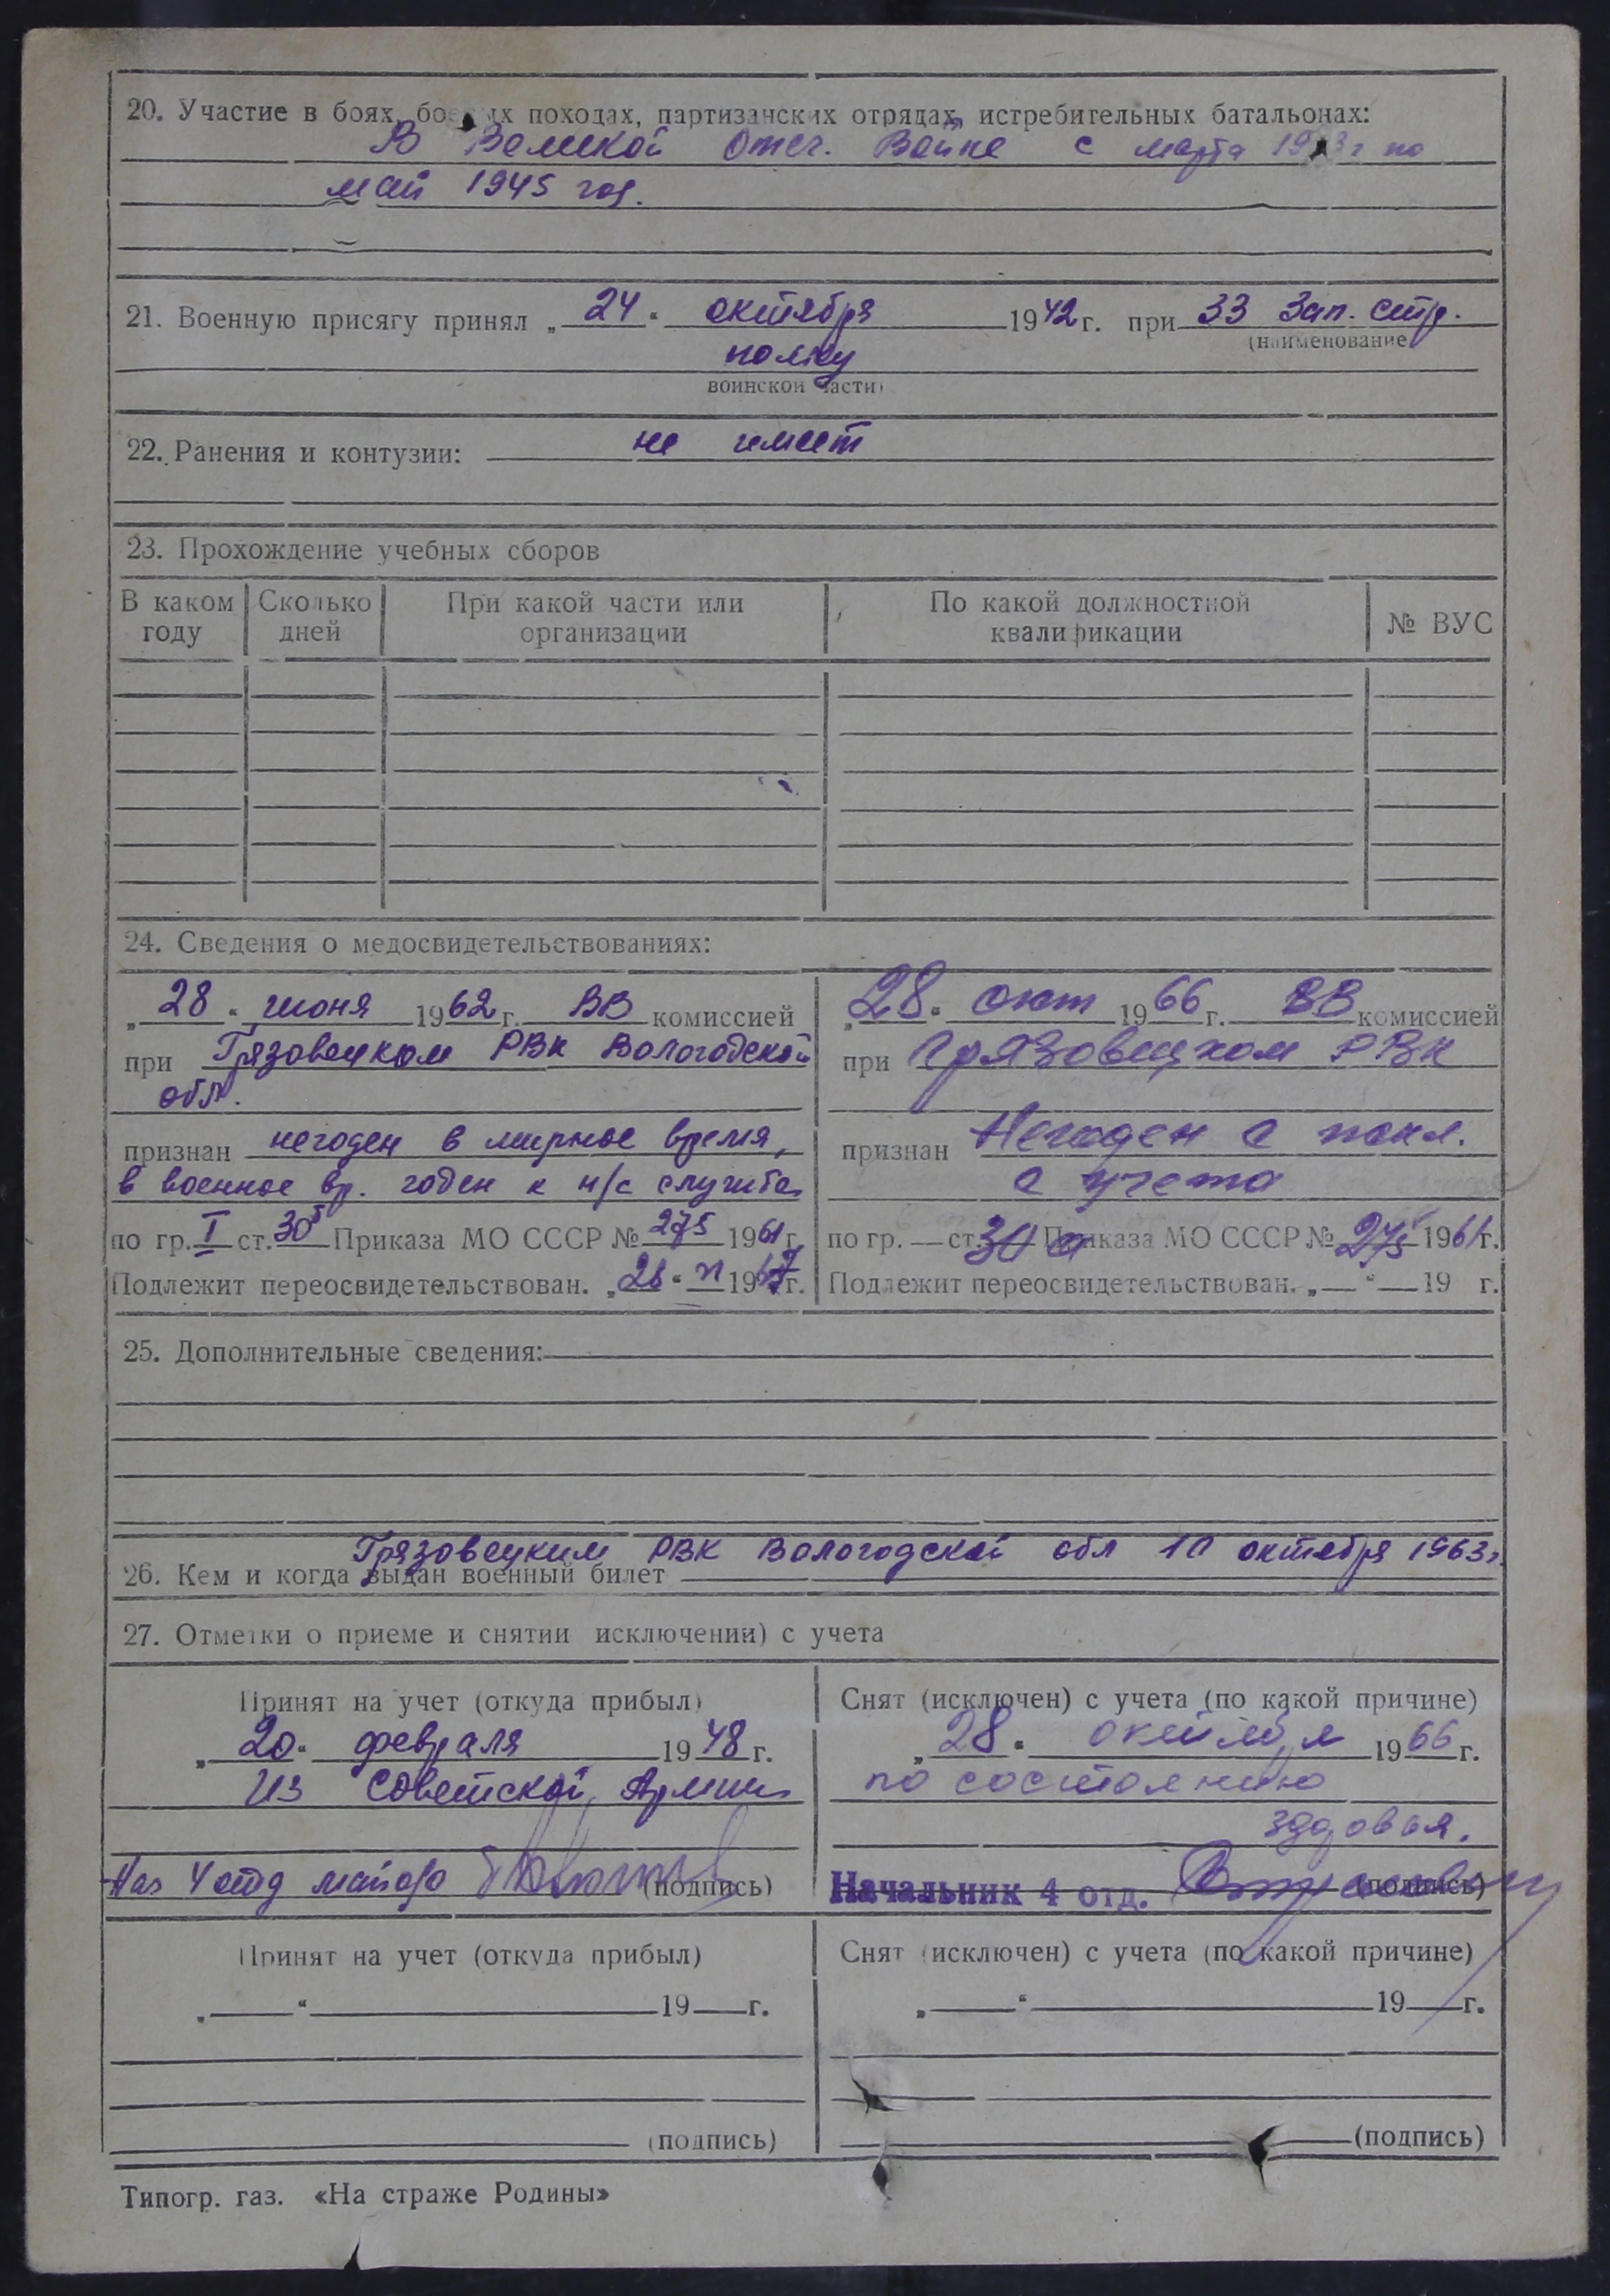 20. Участие в боях, боевых походах, партизанских отрядах, истребительных батальонах:
В Великой Отеч. Войне с марта 1943г по
май 1945 год.
21. Военную присягу принял „24“ октября 1942г. при 33 Зап. стр.
(наименование
полку
воинской части)
22. Ранения и контузии: не имеет
23. Прохождение учебных сборов
В каком году Сколько дней При какой части или организации По какой должностной квалификации № ВУС
24. Сведения о медосвидетельствованиях:
„28“ июня 1962г. ВВ комиссией
при Грязовецком РВК Вологодской
обл.
признан негоден в мирное время,
в военное вр. годен к н/с службе
по гр. I ст. 30б Приказа МО СССР № 275 1961г.
Подлежит переосвидетельствован. „28“ VI 1967г.
„28“ окт 1966г. ВВ комиссией
при Грязовецком РВК
признан Негоден с искл.
с учета
по гр. — ст. 30а Приказа МО СССР № 275 1961г.
Подлежит переосвидетельствован. „—“ — 19 г.
25. Дополнительные сведения:
Грязовецким РВК Вологодской обл 10 октября 1963г.
26. Кем и когда выдан военный билет
27. Отметки о приеме и снятии исключении) с учета
Принят на учет (откуда прибыл)
„20“ февраля 1948г.
Из Советской Армии
Нач 4 отд майор (подпись)
Снят (исключен) с учета (по какой причине)
„28“ октября 1966г.
по состоянию
здоровья.
Начальник 4 отд. (подпись)
Принят на учет (откуда прибыл)
„ “ 19 г.
(подпись)
Снят (исключен) с учета (по какой причине)
„ “ 19 г.
(подпись)
Типогр. газ. «На страже Родины»